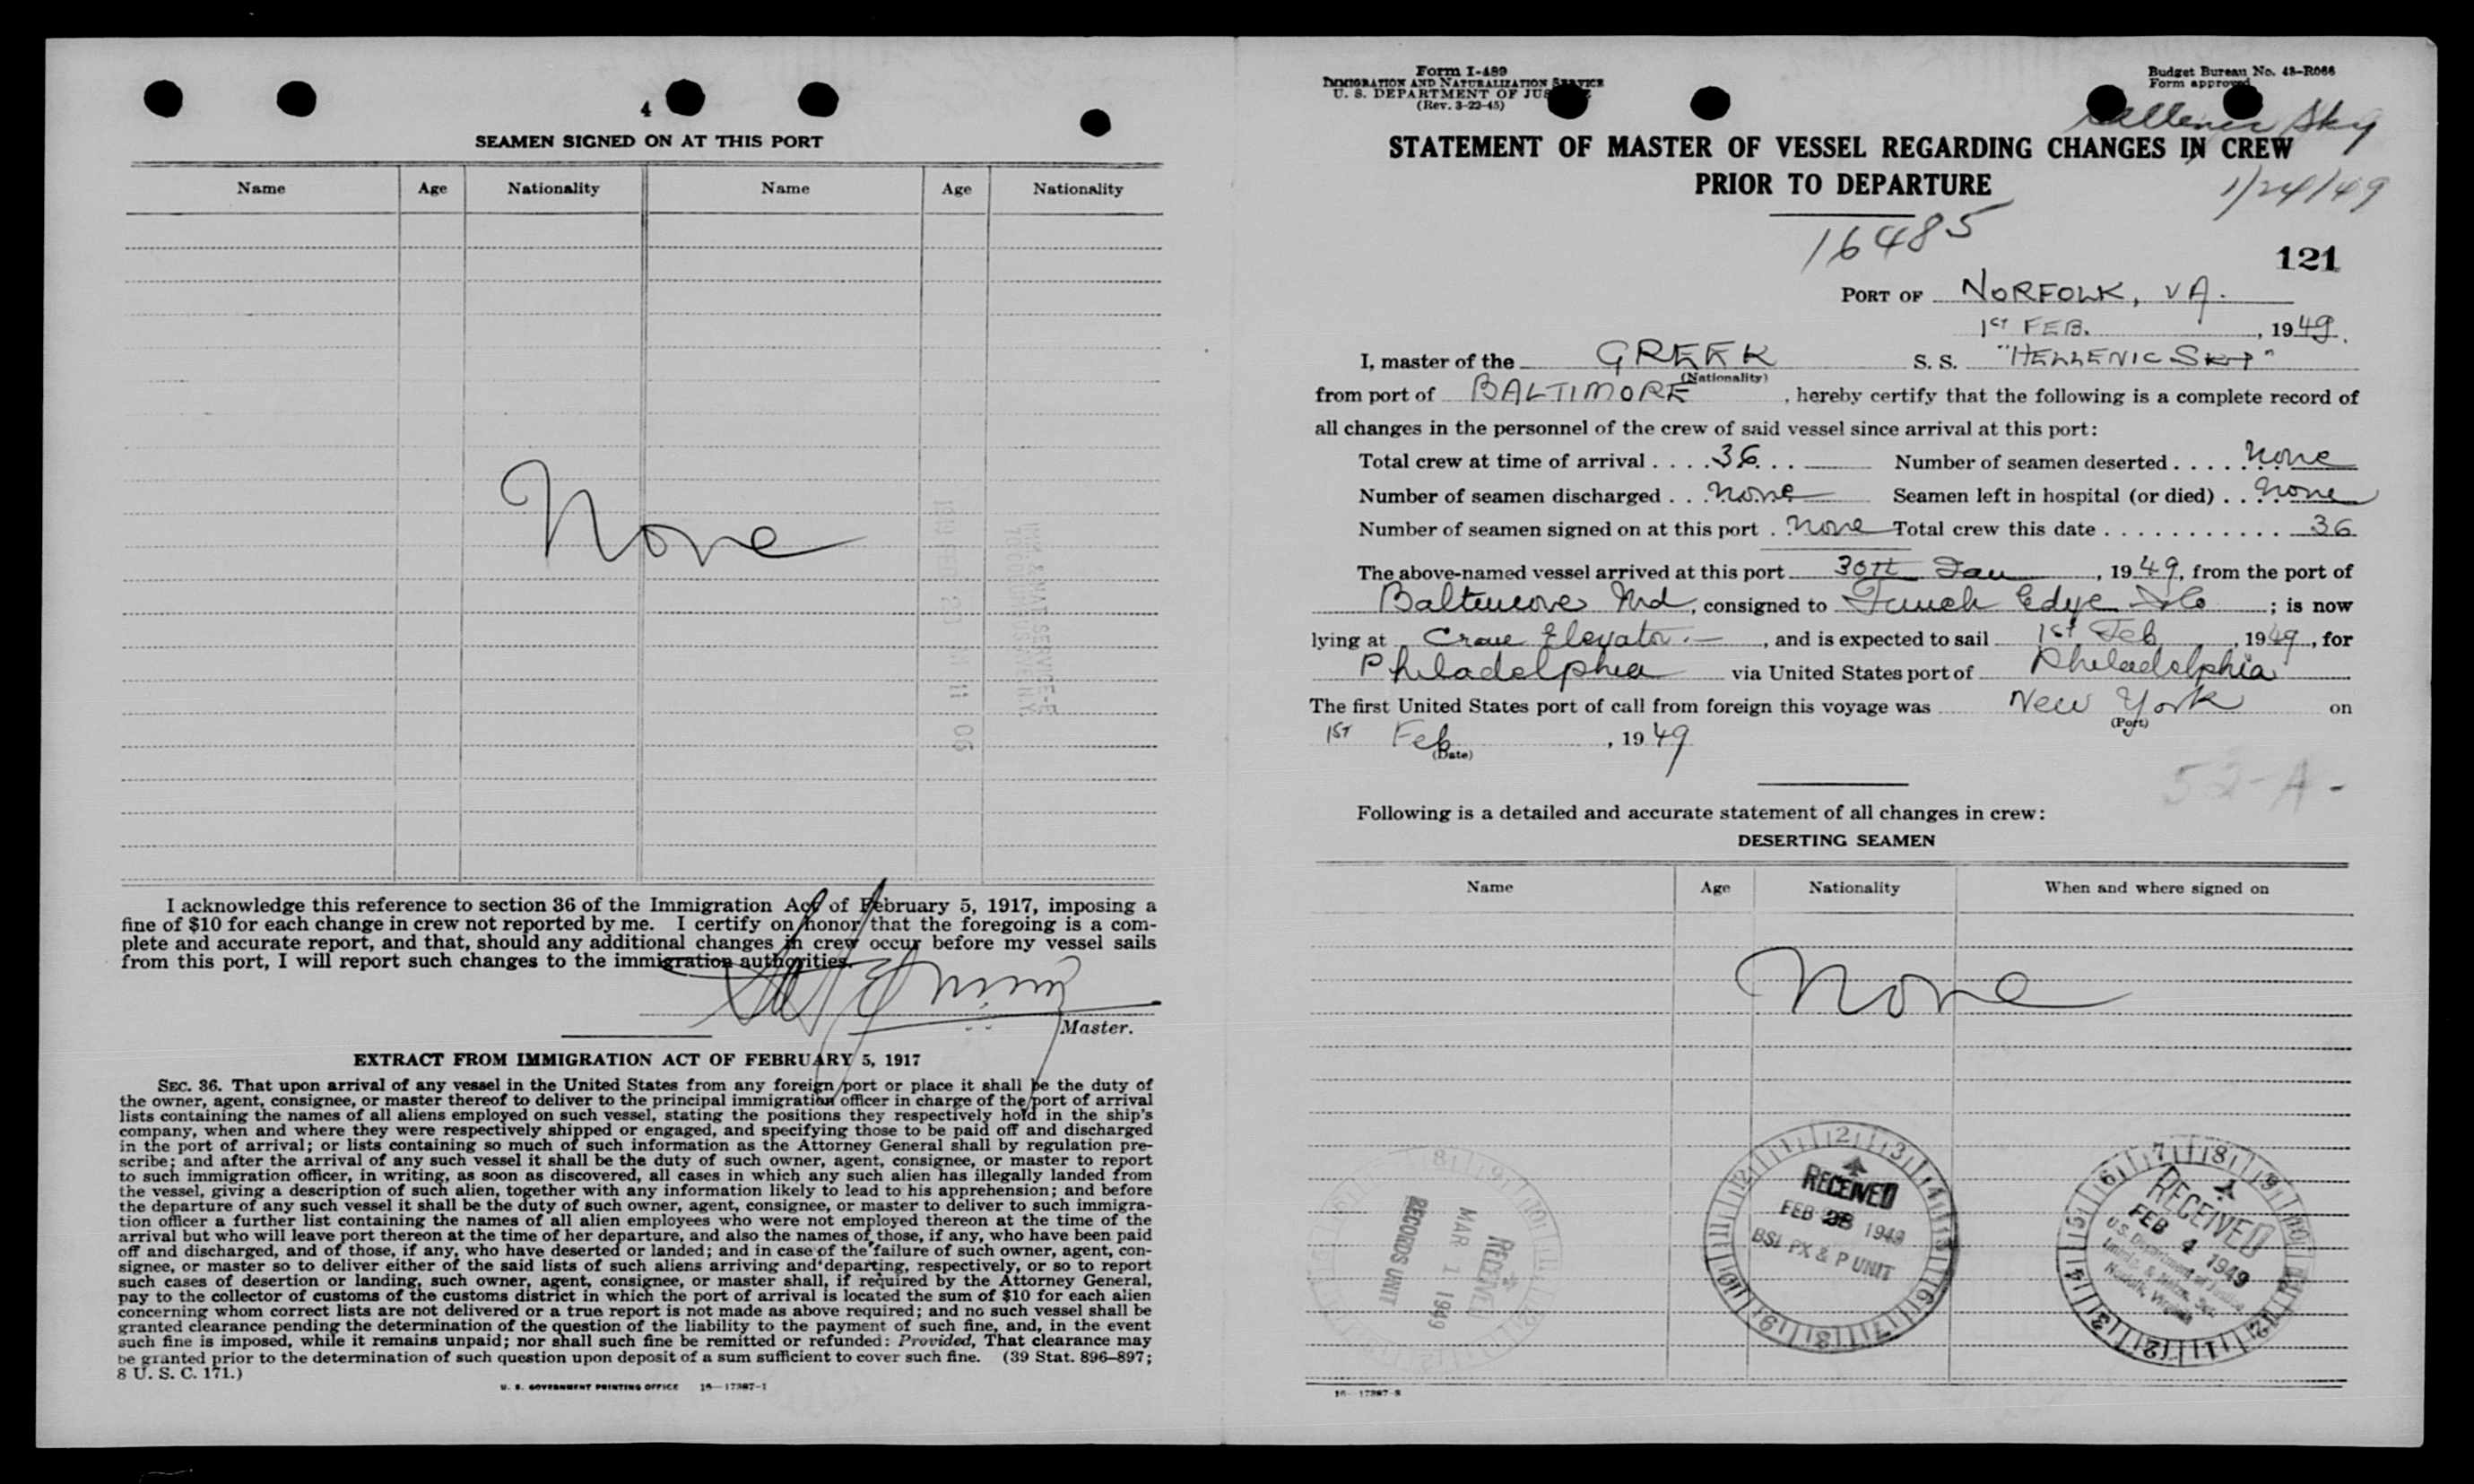 4
SEAMEN SIGNED ON AT THIS PORT
Name Age Nationality Name Age Nationality
None
I acknowledge this reference to section 36 of the Immigration Act of February 5, 1917, imposing a
fine of $10 for each change in crew not reported by me. I certify on honor that the foregoing is a com-
plete and accurate report, and that, should any additional changes in crew occur before my vessel sails
from this port, I will report such changes to the immigration authorities.
Master.
EXTRACT FROM IMMIGRATION ACT OF FEBRUARY 5, 1917
SEC. 36. That upon arrival of any vessel in the United States from any foreign port or place it shall be the duty of
the owner, agent, consignee, or master thereof to deliver to the principal immigration officer in charge of the port of arrival
lists containing the names of all aliens employed on such vessel, stating the positions they respectively hold in the ship's
company, when and where they were respectively shipped or engaged, and specifying those to be paid off and discharged
in the port of arrival; or lists containing so much of such information as the Attorney General shall by regulation pre-
scribe; and after the arrival of any such vessel it shall be the duty of such owner, agent, consignee, or master to report
to such immigration officer, in writing, as soon as discovered, all cases in which any such alien has illegally landed from
the vessel, giving a description of such alien, together with any information likely to lead to his apprehension; and before
the departure of any such vessel it shall be the duty of such owner, agent, consignee, or master to deliver to such immigra-
tion officer a further list containing the names of all alien employees who were not employed thereon at the time of the
arrival but who will leave port thereon at the time of her departure, and also the names of those, if any, who have been paid
off and discharged, and of those, if any, who have deserted or landed; and in case of the failure of such owner, agent, con-
signee, or master so to deliver either of the said lists of such aliens arriving and departing, respectively, or so to report
such cases of desertion or landing, such owner, agent, consignee, or master shall, if required by the Attorney General,
pay to the collector of customs of the customs district in which the port of arrival is located the sum of $10 for each alien
concerning whom correct lists are not delivered or a true report is not made as above required; and no such vessel shall be
granted clearance pending the determination of the question of the liability to the payment of such fine, and, in the event
such fine is imposed, while it remains unpaid; nor shall such fine be remitted or refunded: Provided, That clearance may
be granted prior to the determination of such question upon deposit of a sum sufficient to cover such fine. (39 Stat. 896–897;
8 U. S. C. 171.)
U. S. GOVERNMENT PRINTING OFFICE 16—17387-1
Form I-489
IMMIGRATION AND NATURALIZATION SERVICE
U. S. DEPARTMENT OF JUS
(Rev. 3-22-45)
Budget Bureau No. 43-R066
Form approved
Hellenic Sky
STATEMENT OF MASTER OF VESSEL REGARDING CHANGES IN CREW
PRIOR TO DEPARTURE
1/24/49
16485
121
PORT OF NORFOLK, VA.
1ST FEB., 1949.
I, master of the GREEK S. S. "HELLENIC SKY"
(Nationality)
from port of BALTIMORE, hereby certify that the following is a complete record of
all changes in the personnel of the crew of said vessel since arrival at this port:
Total crew at time of arrival . . . . 36 . . Number of seamen deserted . . . . . None
Number of seamen discharged . . None Seamen left in hospital (or died) . . None
Number of seamen signed on at this port . None Total crew this date . . . . . . . . . . . 36
The above-named vessel arrived at this port 30th Jan, 1949, from the port of
Baltimore Md, consigned to Funch Edye & Co; is now
lying at Elevator, and is expected to sail 1st Feb, 1949, for
Philadelphia via United States port of Philadelphia
The first United States port of call from foreign this voyage was New York on
(Port)
1ST Feb, 1949
(Date)
52-A-
Following is a detailed and accurate statement of all changes in crew:
DESERTING SEAMEN
Name Age Nationality When and where signed on
None
RECEIVED
MAR 1 1949
RECORDS UNIT
RECEIVED
FEB 28 1949
BSI PX & P UNIT
RECEIVED
FEB 4 1949
U.S. Department of Justice
Immig. & Natur. Ser.
Norfolk, Virginia